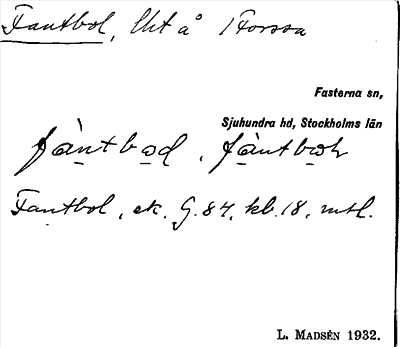 Fantbol, Utt å Forssa
Fasterna sn,
Sjuhundra hd, Stockholms län
fàntbod, fàntboh
Fantbol, ek. G. 84, kb. 18, mtl.
L. MADSÉN 1932.